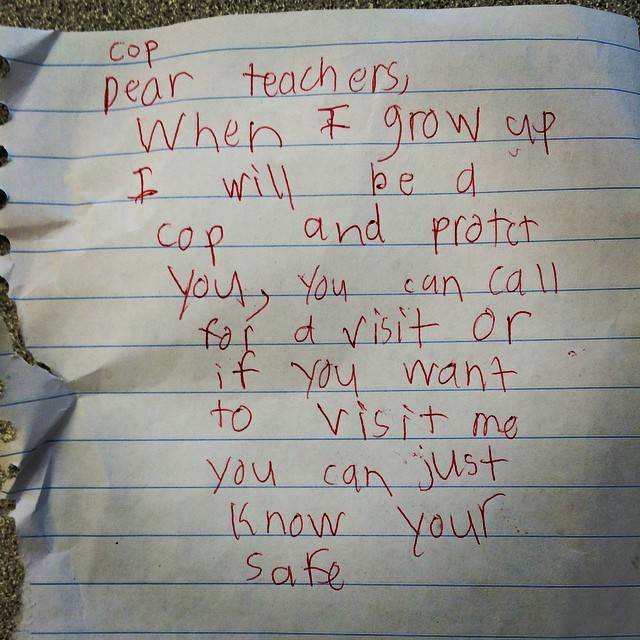 cop
Dear teachers,
When I grow up
I will be a
cop and protct
you, you can call
for a visit or
if you want
to visit me
you can just
know your
safe